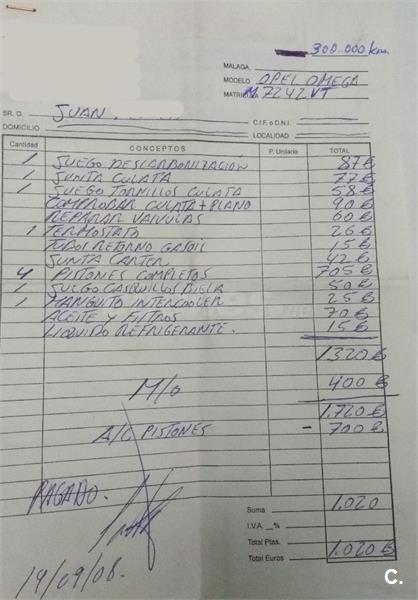 300.000 km
MALAGA,
MODELO OPEL OMEGA
MATRICULA M 7242 VT
SR. D. JUAN.
C.I.F. o D.N.I.
DOMICILIO
LOCALIDAD
Cantidad CONCEPTOS P. Unitario TOTAL
1 JUEGO DESCARBONIZACIÓN 87 €
1 JUNTA CULATA 77 €
1 JUEGO TORNILLOS CULATA 58 €
COMPROBAR CULATA + PLANO 90 €
REPARAR VALVULAS 60 €
1 TERMOSTATO 26 €
TUBOS RETORNO GASOIL 15 €
JUNTA CARTER 42 €
4 PISTONES COMPLETOS 705 €
1 JUEGO CASQUILLOS BIELA 50 €
1 MANGUITO INTERCOOLER 25 €
ACEITE Y FILTROS 70 €
LIQUIDO REFRIGERANTE. 15 €
1320 €
M/o 400 €
1.720 €
A/C PISTONES - 700 €
PAGADO.
Suma 1.020
I.V.A. %
Total Ptas.
Total Euros 1.020 €
19/09/08.
C.